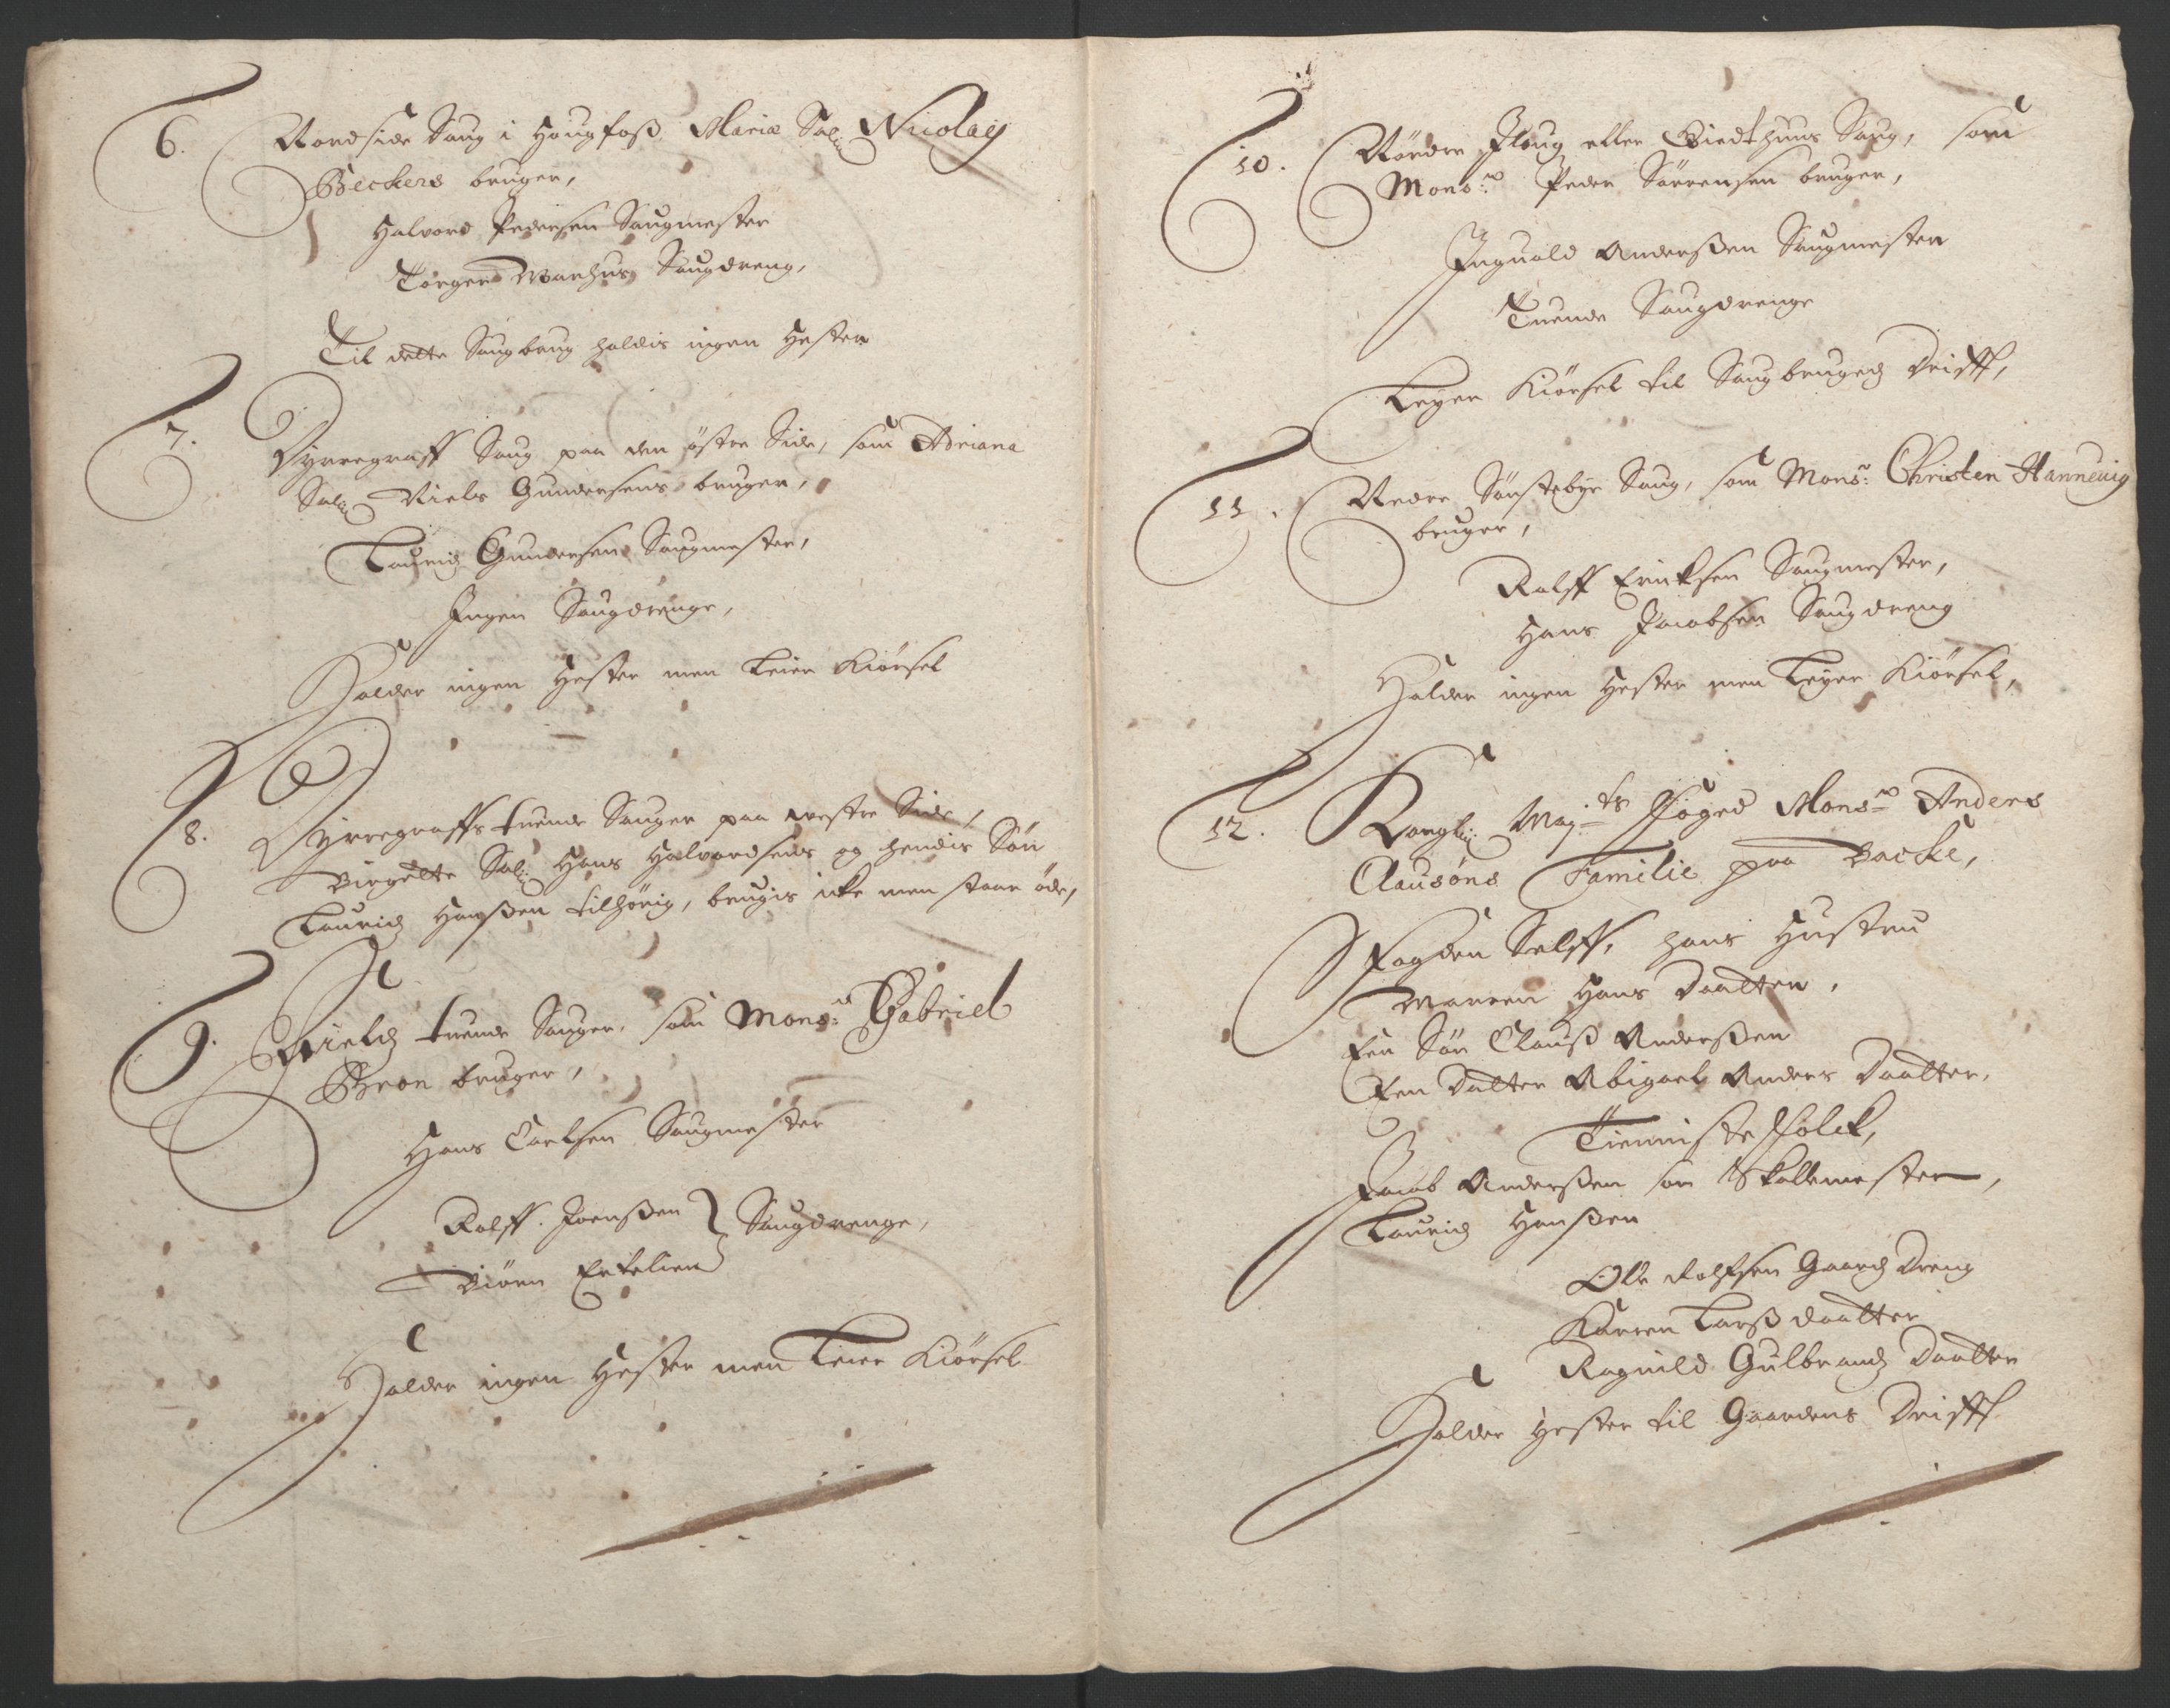 6. Nordside Saug i Hougfoß Maria Sal: Nicolay
Beckers bruger,
Halvord Pedersen Saugmester
Torger Warhus Saugdreng,
Til dette Saugbrug holdis ingen Hester
7. Dyrregraff Saug paa den østre Side, som Adriana
Sal: Niels Gundersens bruger,
Lauridz Gundersen Saugmester,
Ingen Saugdrenge,
Holder ingen Hester men Leier Kiörsel
8. Dyrregraffs tuende Sauger paa westre Side,
Birgette Sal: Hans Halvordsens og hendis Sön
Lauridz Hanßen tilhörig, brugis icke men staar öde,
9. tuende Sauger, som Monsr: Gabriel
Breon bruger,
Hans Carlsen Saugmester
Rolff Joenßen } Saugdrenge,
Biörn
Holder ingen Hester men Leier Kiörsel
10. Nordre Floug eller Giedthuus Saug, som
Monsr: Peder Sörrensen bruger,
Inguald Anderßen Saugmester
Tuende Saugdrenge
Leyer Kiörsel til Saugbrugedz Drifft,
11. Nedre Sönstebye Saug, som Monsr: Christen Hanneuig
bruger,
Rolff Erichsen Saugmester,
Hans Jacobsen Saugdreng
Holder ingen Hester men Leyer Kiörsel,
12. Kongl: Mayts Foged Monsr Anders
Clausöns Familie paa Backe,
Fogden Selff, hans Hustru
Marren Hans Daatter,
Een Sön Clauß Anderßen
Een Datter Abigael Anders Daatter,
Tienniste Folck,
Jacob Anderßen som Skollemester,
Lauridz Hanßen
Ole Rolfsen Gaardz Dreng
Karren Larß daatter
Ragnild Gulbrandz Daatter
Holder Hester til Gaardens Drifft